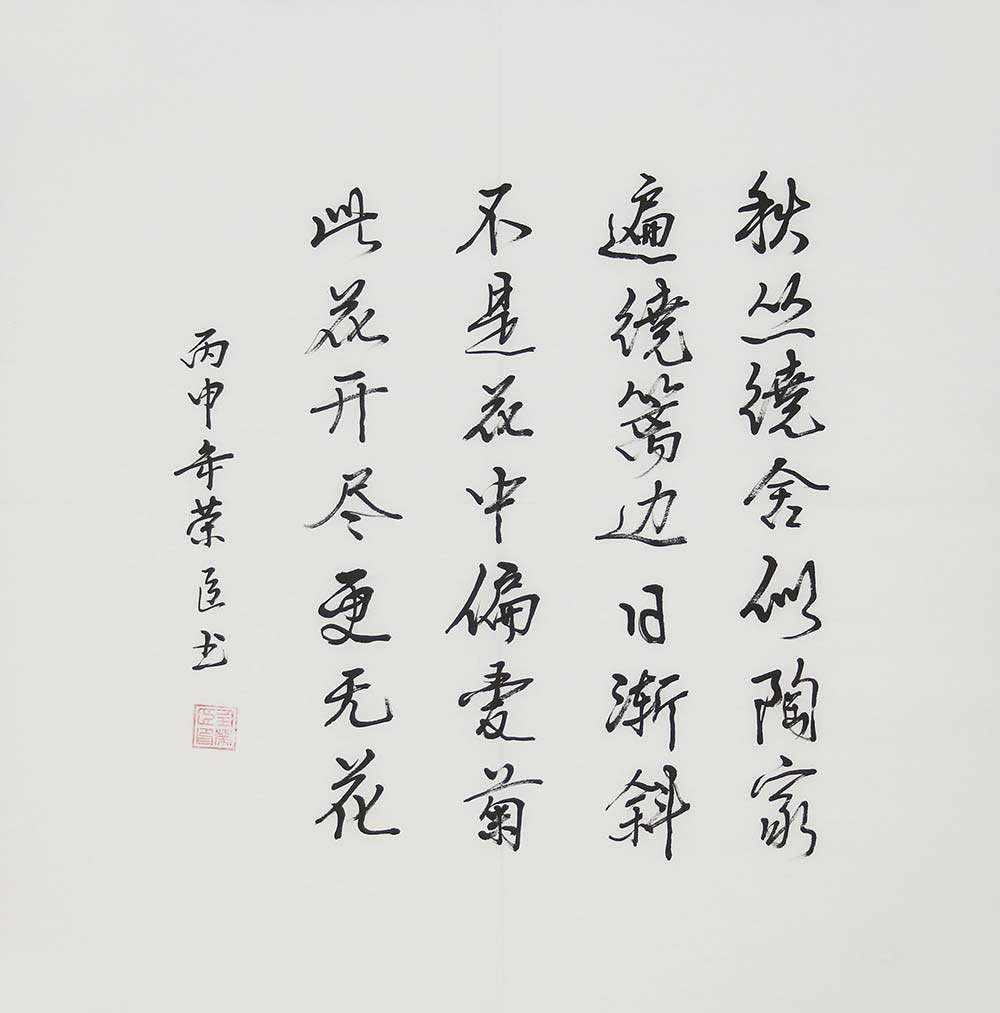 秋丛绕舍似陶家
遍绕篱边日渐斜
不是花中偏爱菊
此花开尽更无花
丙申年荣臣书